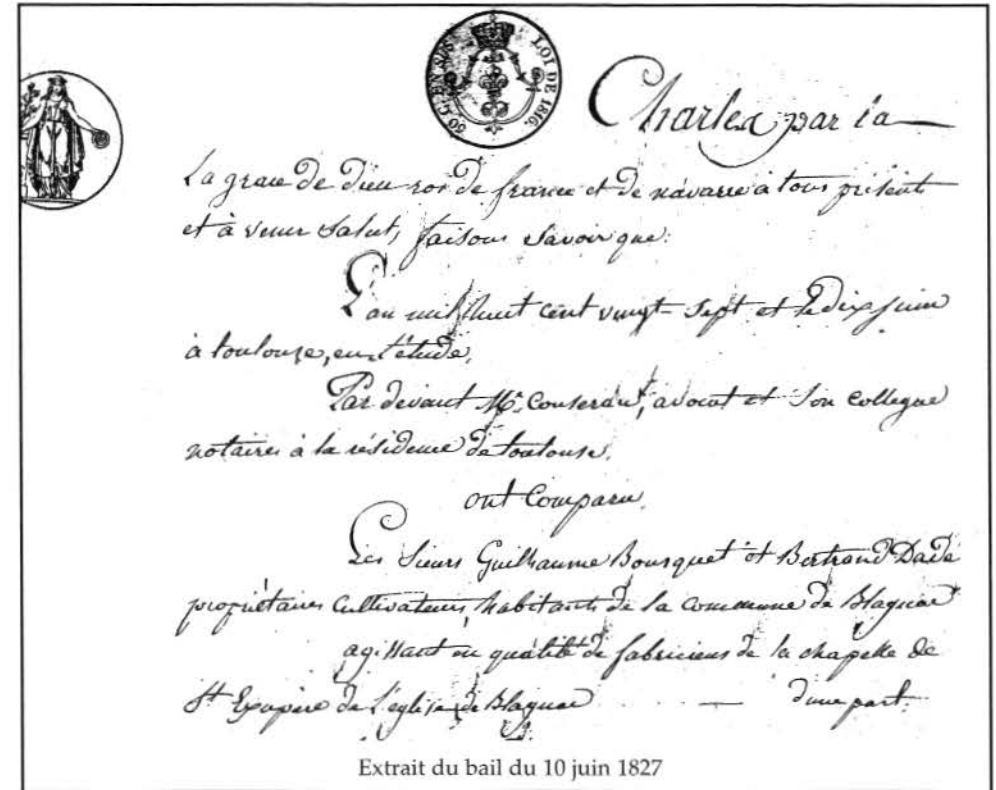 50 C. EN SUS LOI DE 1816.
Charles par la
La grace de Dieu roi de france et de navarre à tous présents
et à venir Salut, faisons Savoir que:
L'an mil huit cent vingt-Sept et le dix juin
à toulouse, en l'étude,
Par devant Me. Couseran, avocat et Son Collegue
notaires à la résidence de toulouse.
ont Comparu,
Les Sieurs Guilhaume Bousquet et Bertrand Dade
propriétaires Cultivateurs, habitants de la commune de Blagnac
agissant en qualité de fabriciens de la chapelle de
St Exupère de L'eglise de Blagnac — d'une part.
Extrait du bail du 10 juin 1827